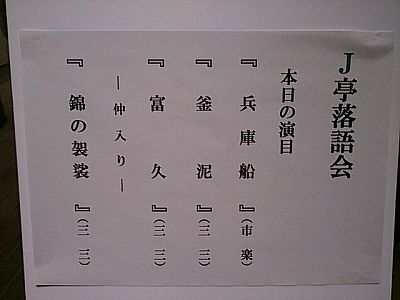 J亭落語会
本日の演目
『兵庫船』（市楽）
『釜泥』（三三）
『富久』（三三）
―仲入り―
『錦の袈裟』（三三）